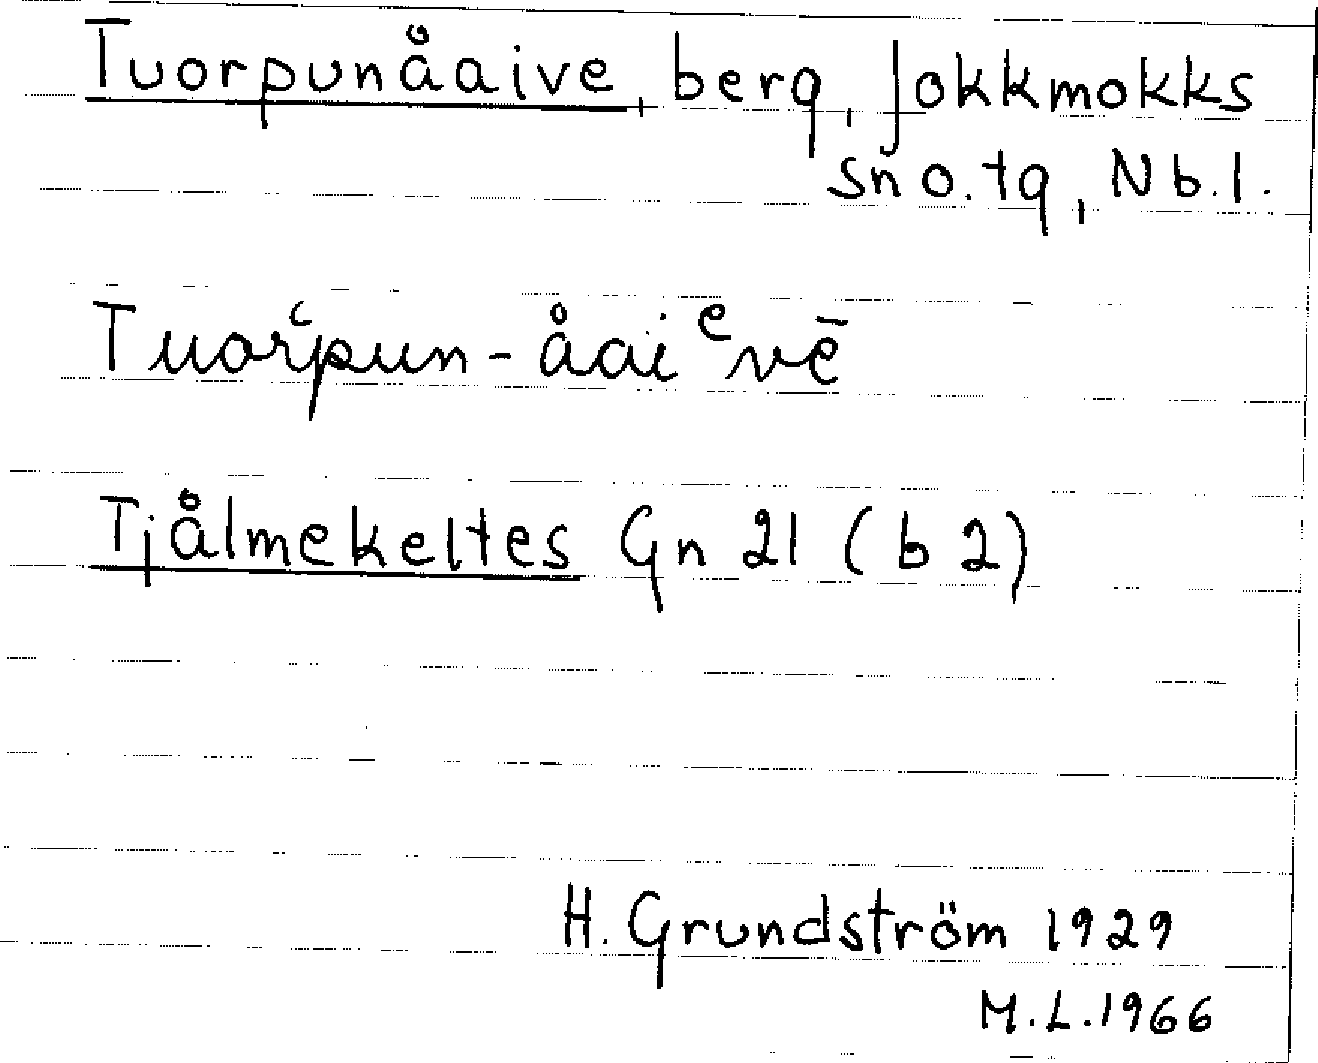 Tuorpunåaive, berg, Jokkmokks
sn o. tg, Nb. l.
Tuorʽpun-åaiᵉvē
Tjålmekeltes Gn 21 (b 2)
H. Grundström 1929
M.L. 1966